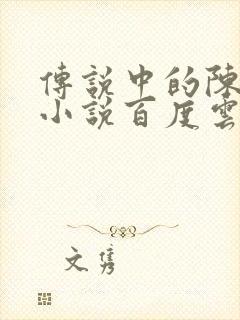 傳說中的陳
小說百度雲
文雋